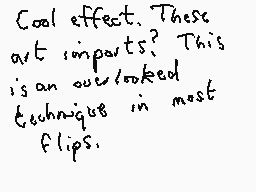 Cool effect. These
art imports? This
is an overlooked
technique in most
flips.